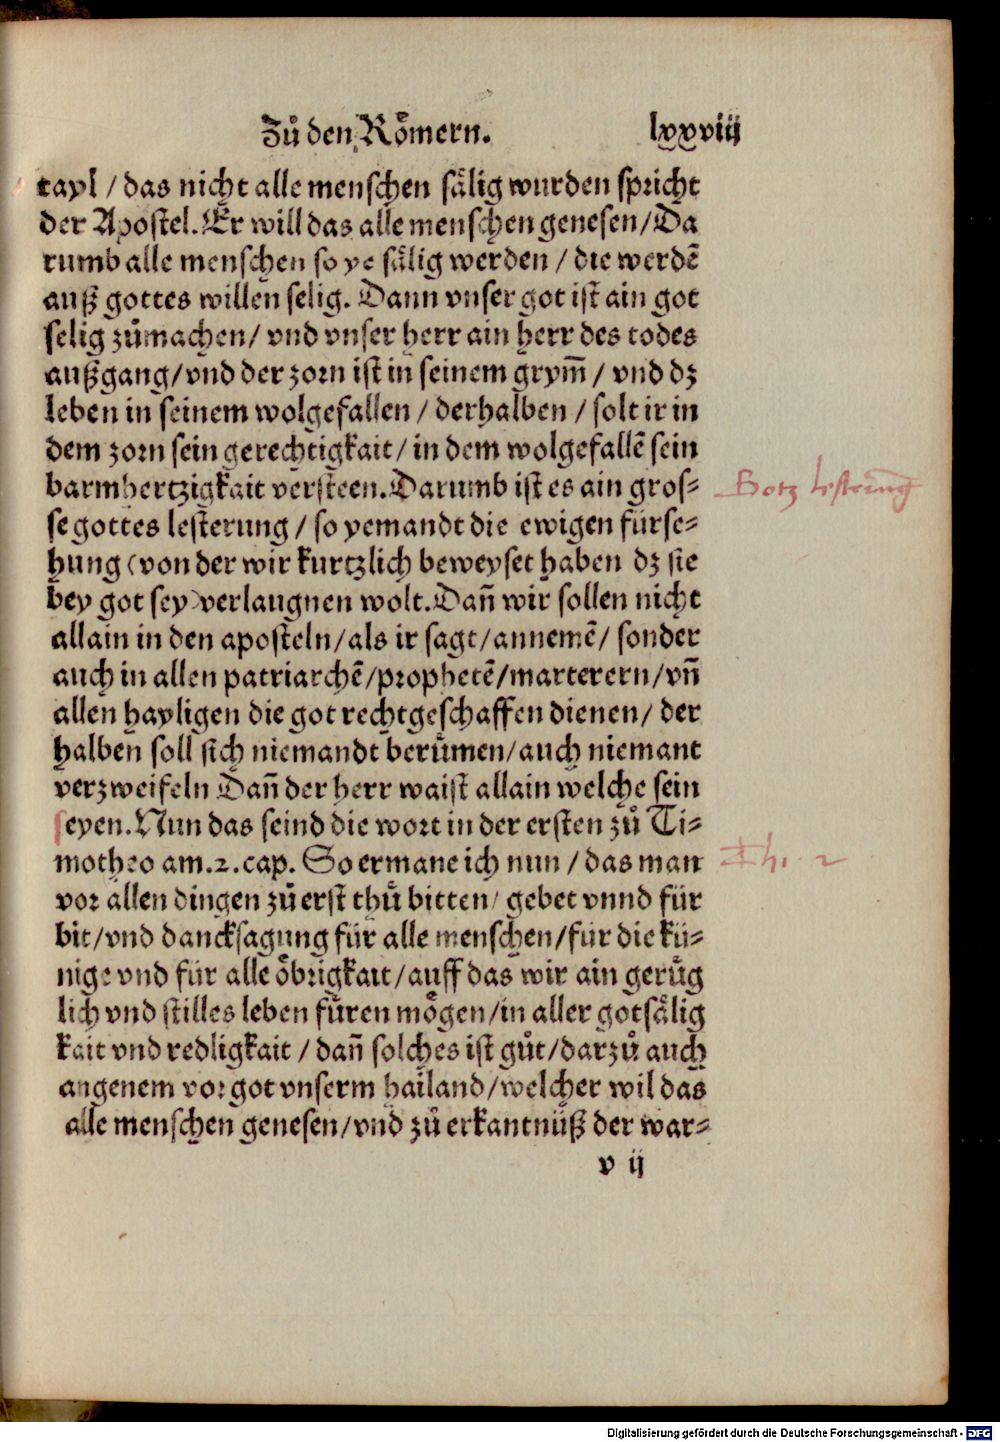 Zů den Rőmern. lxxviij
tayl / das nicht alle menschen sålig wurden spricht
der Apostel. Er will das alle menschen genesen / Da
rumb alle menschen so ye sålig werden / die werdē
auß gottes willen selig. Dann vnser got ist ain got
selig zůmachen / vnd vnser herr ain herr des todes
außgang / vnd der zorn ist in seinem grym̄ / vnd dz
leben in seinem wolgefallen / derhalben / solt ir in
dem zorn sein gerechtigkait / in dem wolgefallē sein
barmhertzigkait versteen. Darumb ist es ain gros⸗
se gottes lesterung / so yemandt die ewigen fürse⸗
hung (von der wir kurtzlich beweyset haben dz sie
bey got sey) verlaugnen wolt. Dañ wir sollen nicht
allain in den aposteln / als ir sagt / annemē / sonder
auch in allen patriarchē / prophetē / marterern / vñ
allen hayligen die got rechtgeschaffen dienen / der
halben soll sich niemandt berůmen / auch niemant
verzweifeln Dañ der herr waist allain welche sein
seyen. Nun das seind die wort in der ersten zů Ti⸗
motheo am .2. cap. So ermane ich nun / das man
vor allen dingen zů erst thů bitten / gebet vnnd für
bit / vnd dancksagung für alle menschen / für die kü⸗
nige vnd für alle öbrigkait / auff das wir ain gerůg
lich vnd stilles leben fůren mögen / in aller gotsålig
kait vnd redligkait / dañ solches ist gůt / darzů auch
angenem vor got vnserm hailand / welcher wil das
alle menschen genesen / vnd zů erkantnüß der war⸗
v ij
Gotz lesterung
Thi. 2
Digitalisierung gefördert durch die Deutsche Forschungsgemeinschaft - DFG